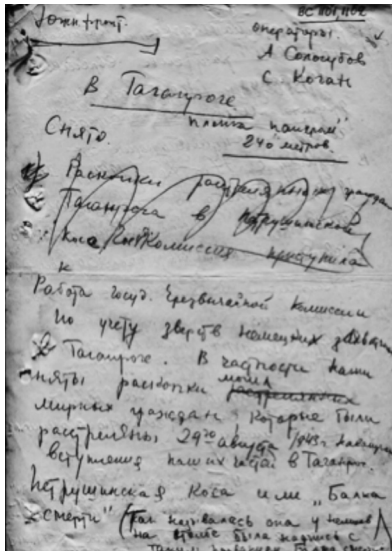 Южн. фронт.
операторы:
А Сологубов
С. Коган
В Таганроге
Снято.
240 метров.
Раскопки граждан
Таганрога в Петрушинской
косе Комиссия приступила
к
Работа госуд. Чрезвычайной Комиссии
по учету зверств немецких
в Таганроге. В частности нами
сняты раскопки могил
мирных граждан, которые были
расстреляны 29го августа 1943г накануне
вступления наших частей в Таганрог.
Петрушинская Коса или "Балка
смерти" (так называлась она у немцев
на столбе была надпись с